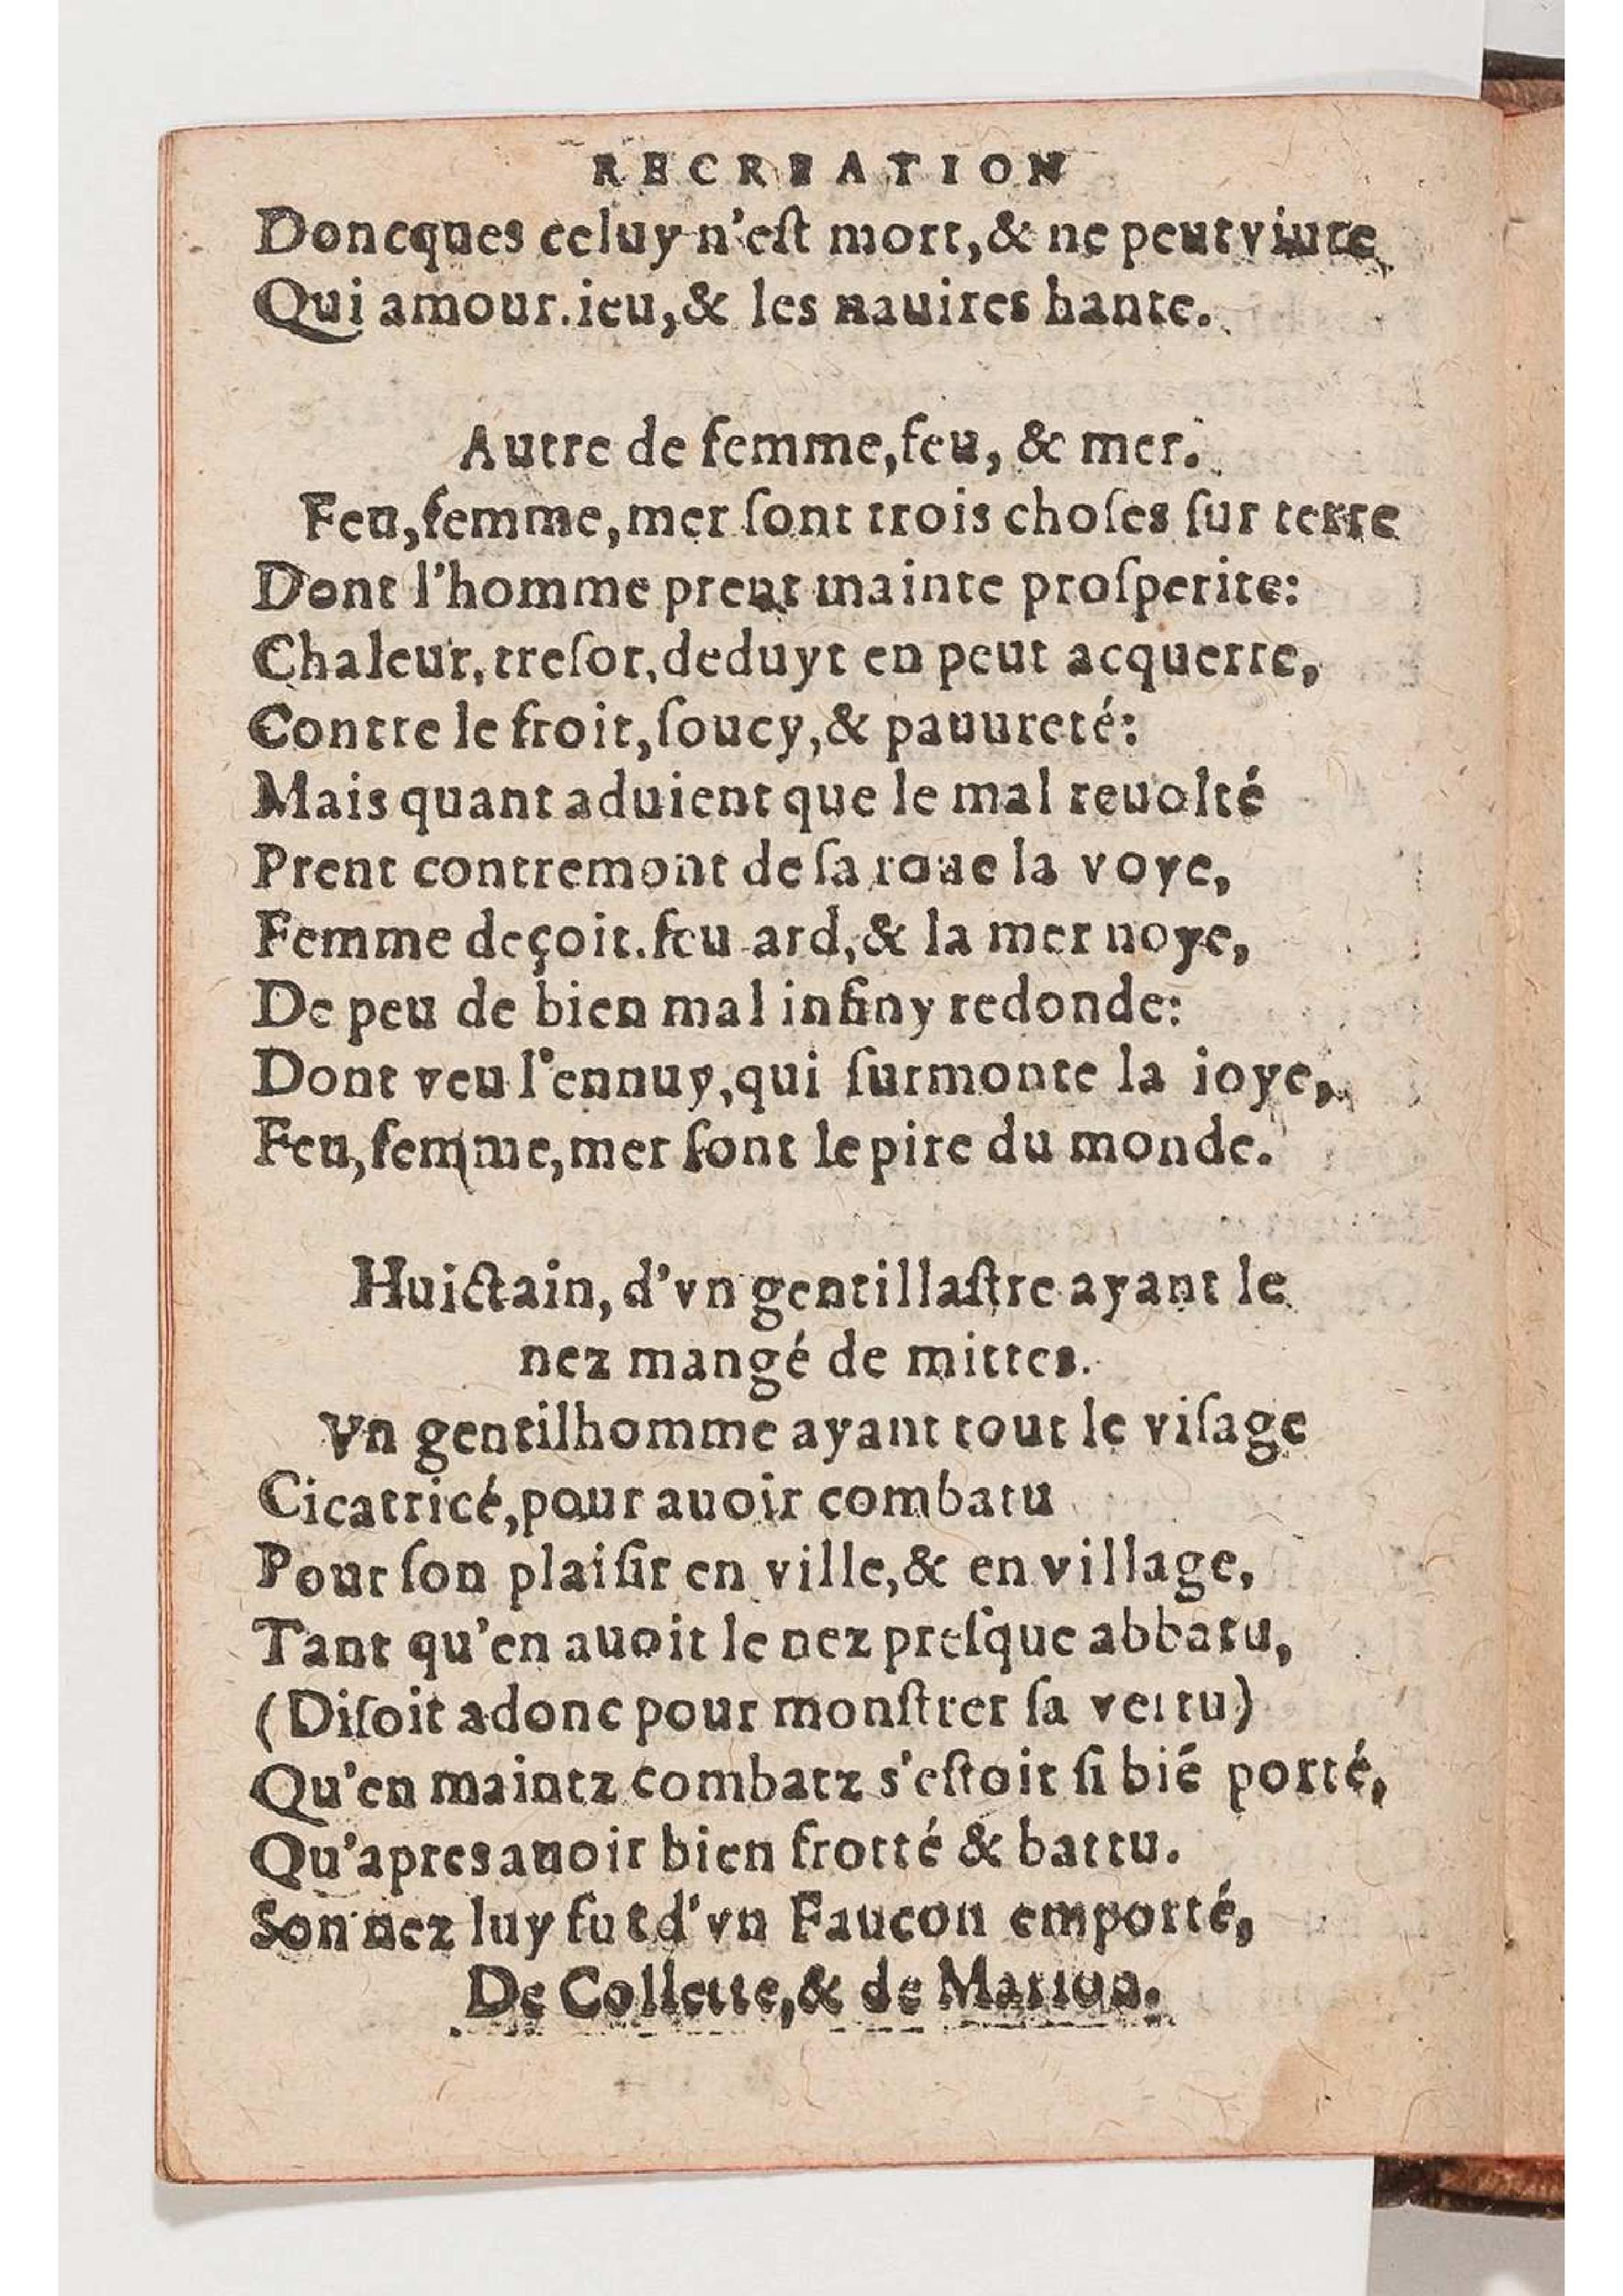 RECREATION
Doncques celuy n'eſt mort,& ne peut viure
Qui amour.ieu,& les nauires hante.
Autre de femme,feu, & mer.
Feu,femme,mer ſont trois choſes ſur terre
Dont l'homme prent mainte proſperite:
Chaleur,treſor,deduyt en peut acquerre,
Contre le froit,ſoucy,& pauureté:
Mais quant aduient que le mal reuolté
Prent contremont de ſa roue la voye,
Femme deçoit.feu ard,& la mer noye,
De peu de bien mal infiny redonde:
Dont veu l'ennuy,qui ſurmonte la ioye,
Feu,femme,mer ſont le pire du monde.
Huictain, d'vn gentillaſtre ayant le
nez mangé de mittes.
Vn gentilhomme ayant tout le viſage
Cicatricé,pour auoir combatu
Pour ſon plaiſir en ville,& en village,
Tant qu'en auoit le nez preſque abbatu,
(Diſoit adonc pour monſtrer ſa vertu)
Qu'en maintz combatz s'eſtoit ſi bié porté,
Qu'apres auoir bien frotté & battu.
Son nez luy fut d'vn Faucon emporté,
De Collette,& de Marion.